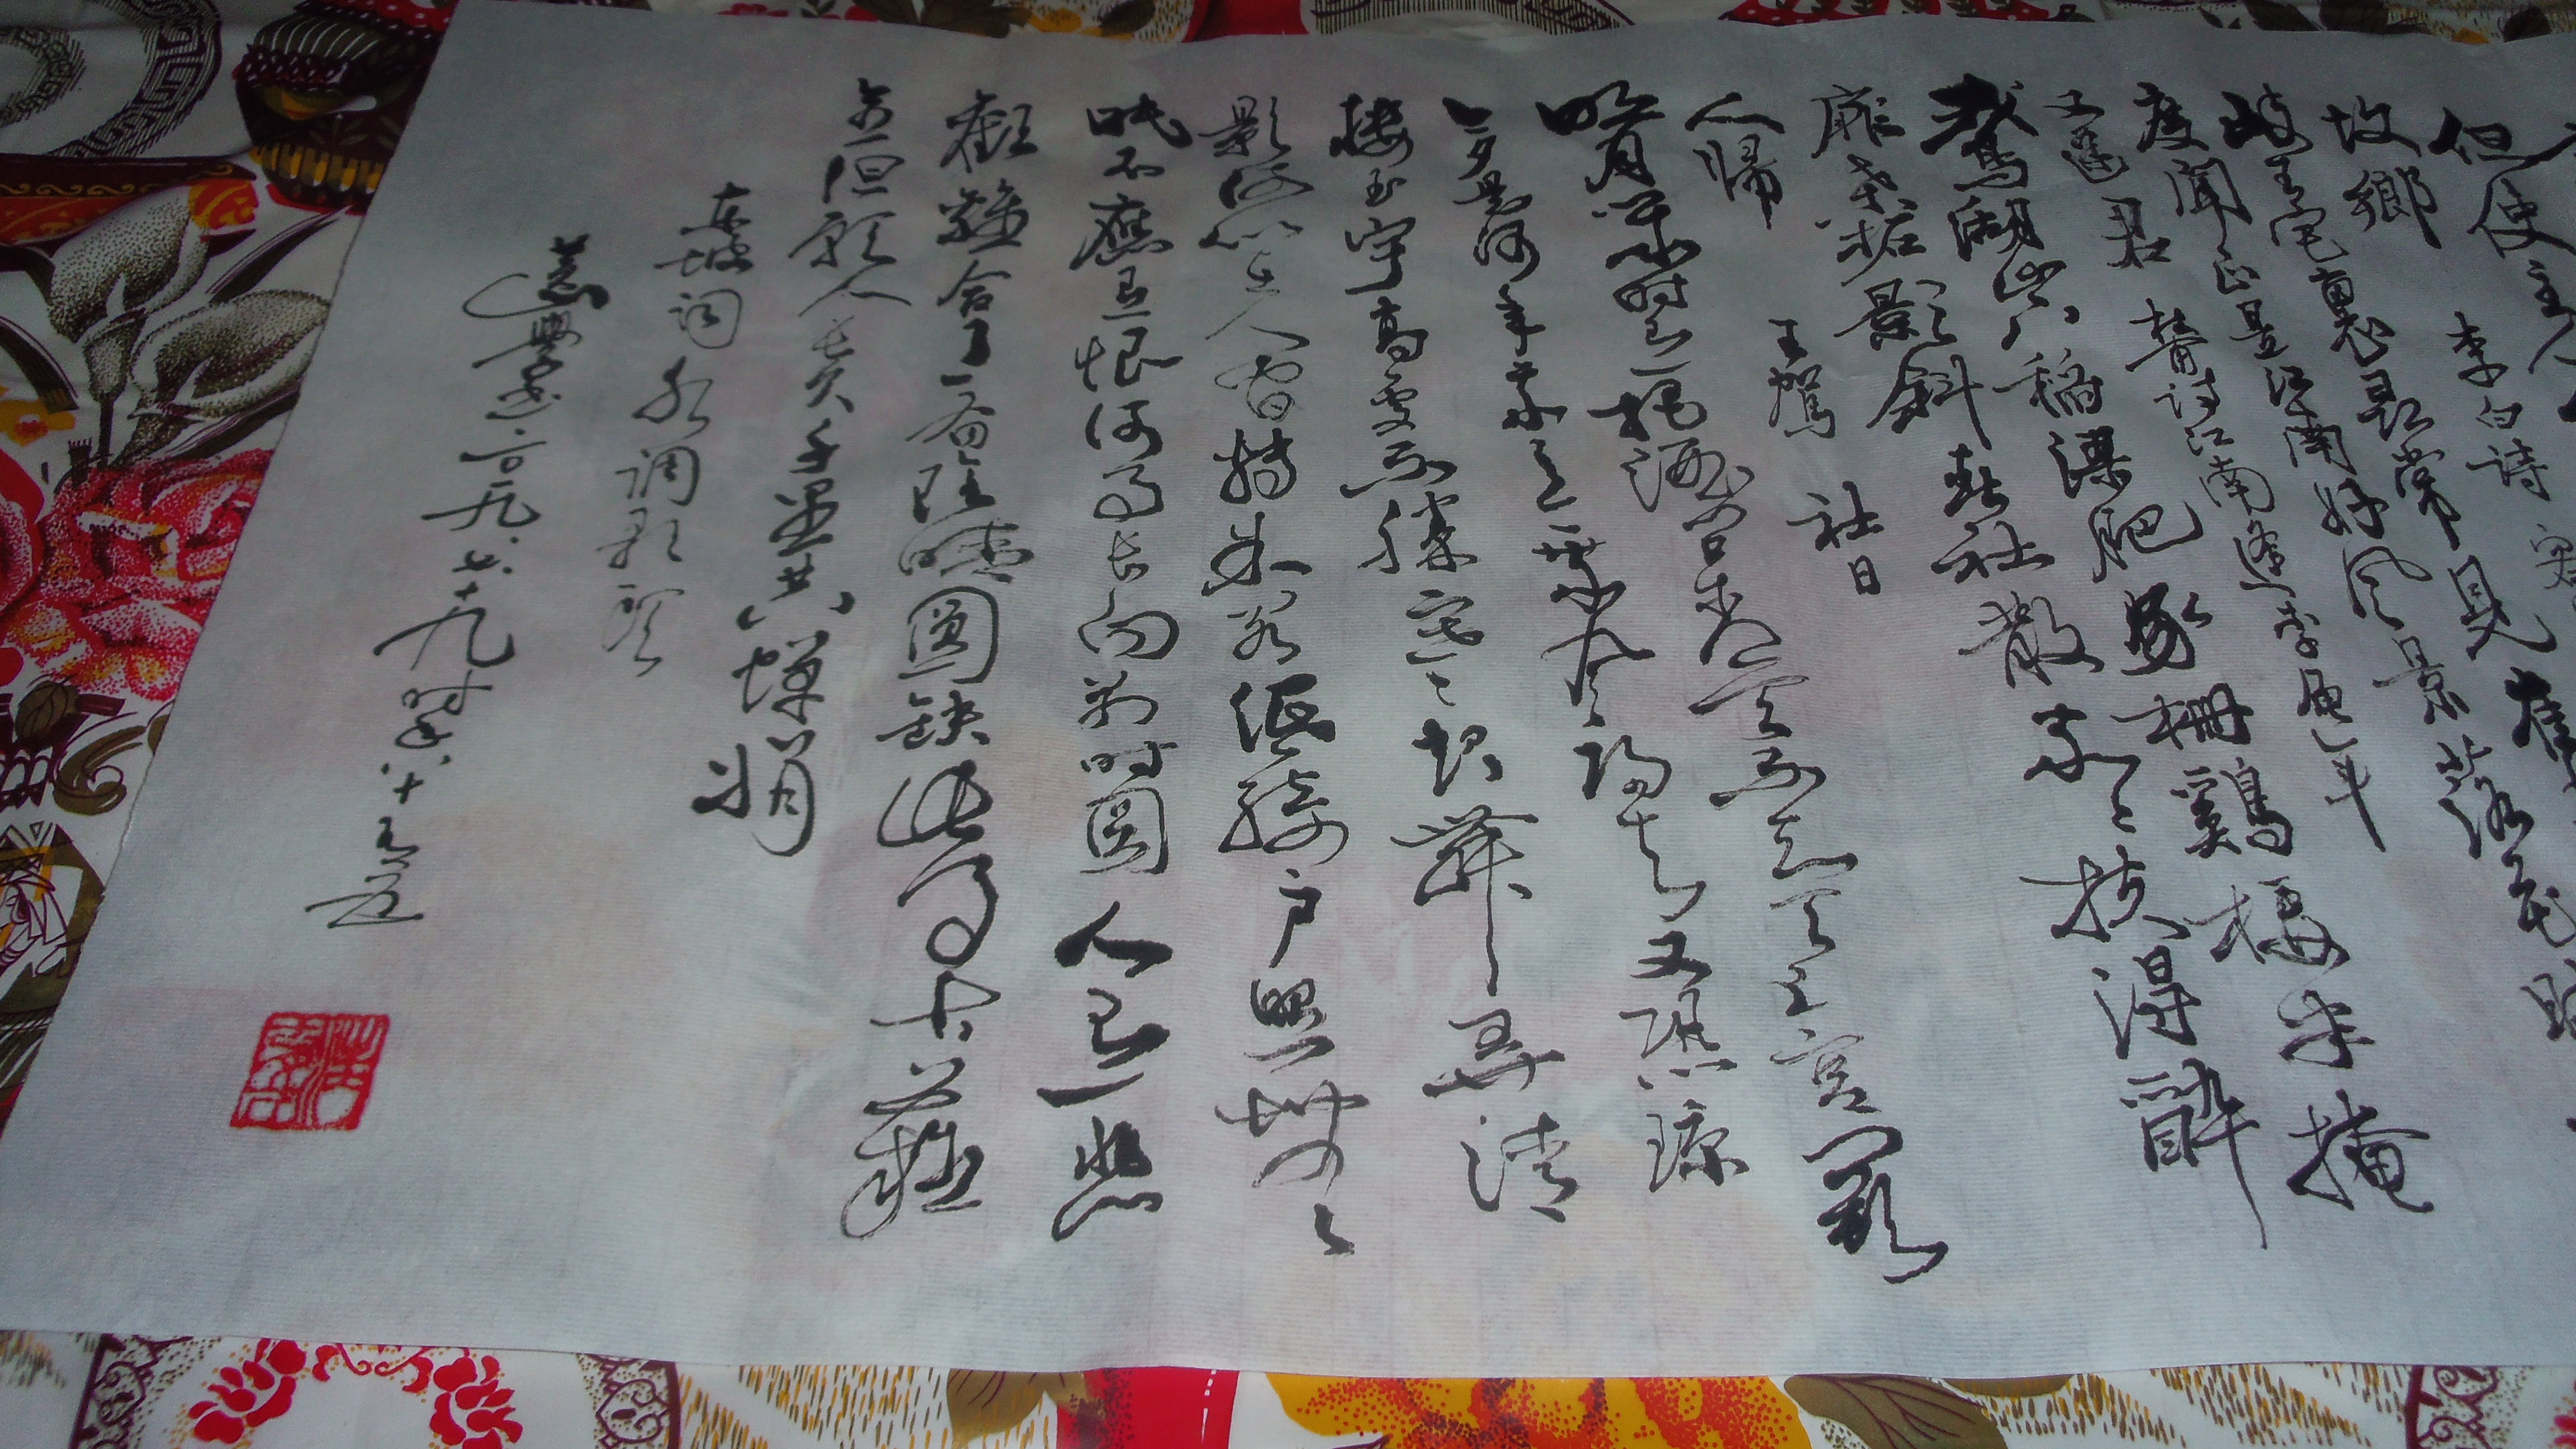 但使主人
故鄉 李白詩 客
岐王宅裏尋常見 崔
度聞正是江南好風景落花時
又逢君 詩江南逢李龜年
鵝湖山下稻粱肥豚栅鷄栖半掩
扉桑柘影斜春社散家々扶得醉
人歸 王駕 社日
明月幾時有把酒問青天不知天上宫闕
今夕是何年我欲乘風歸去又恐瓊
樓玉宇高處不勝寒 起舞弄清
影何似在人間轉朱閣低綺户照無
眠不應有恨何事長向别時圓人有悲
歡離合月有陰晴圓缺此事古難
全但願人長久千里共嬋娟
東坡詞水調歌頭
七十九時年八十五歲